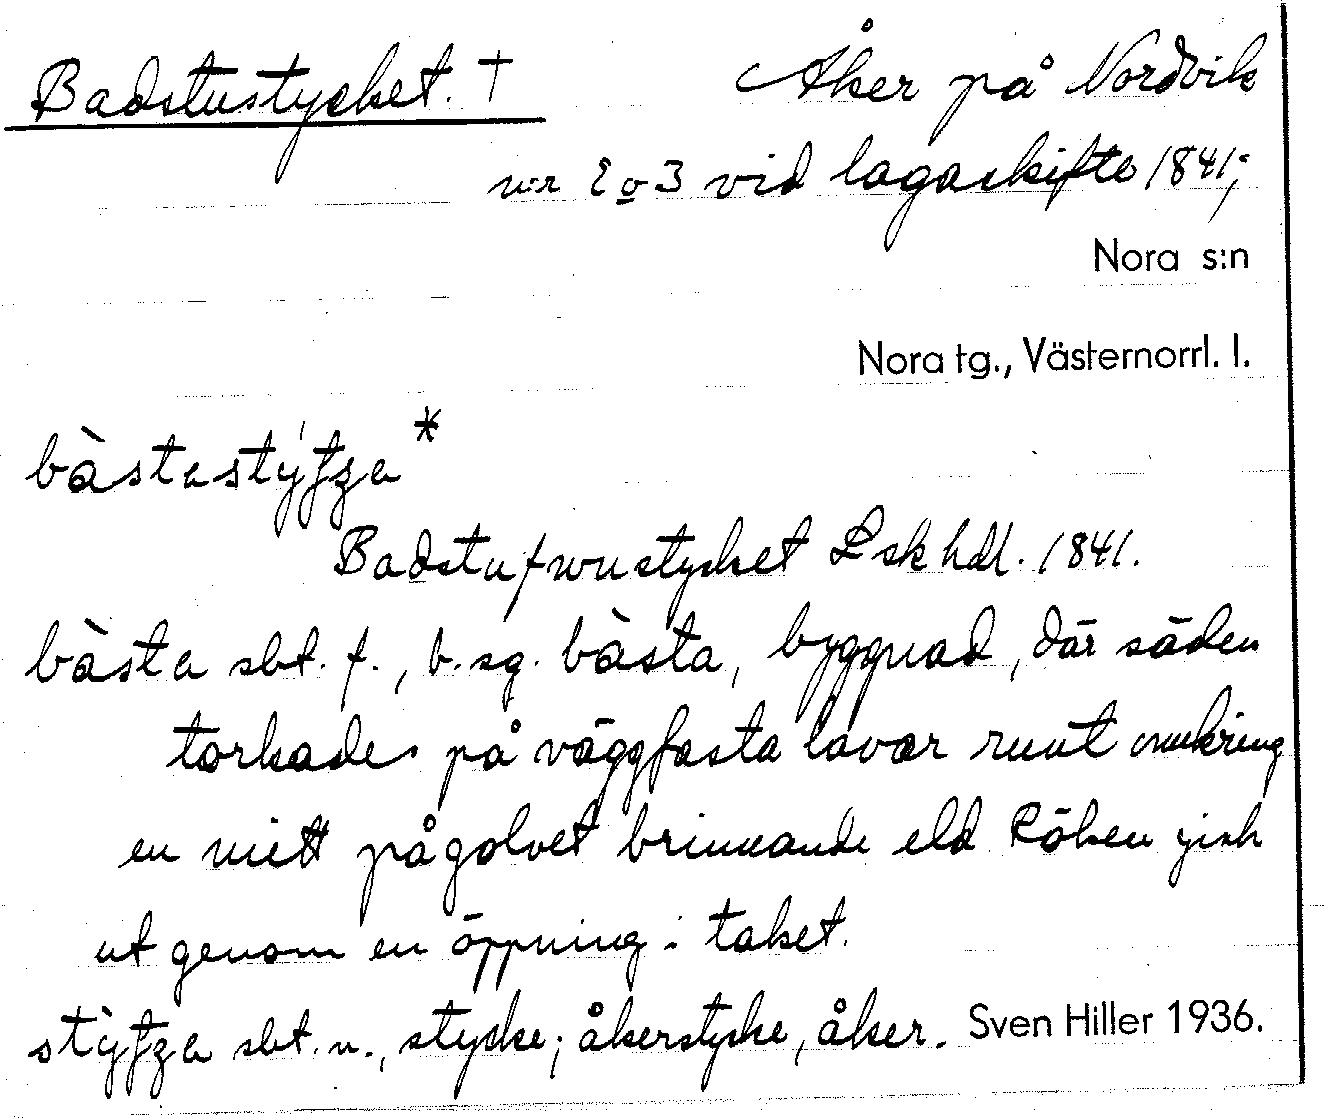 Badstustycket. † Åker på Nordvik
n:r 2 o 3 vid lagaskifte 1841;
Nora s:n
Nora tg., Västernorrl. l.
bàstastýʃʒa*
Badstufwustycket L sk hdl. 1841.
bàsta sbt. f., b. sg. bàsta, byggnad, där säden
torkades på väggfasta lavar runt omkring
en mitt på golvet brinnande eld Röken gick
ut genom en öppning i taket.
sty̌ʃʒa sbt. n., stycke; åkerstycke, åker. Sven Hiller 1936.